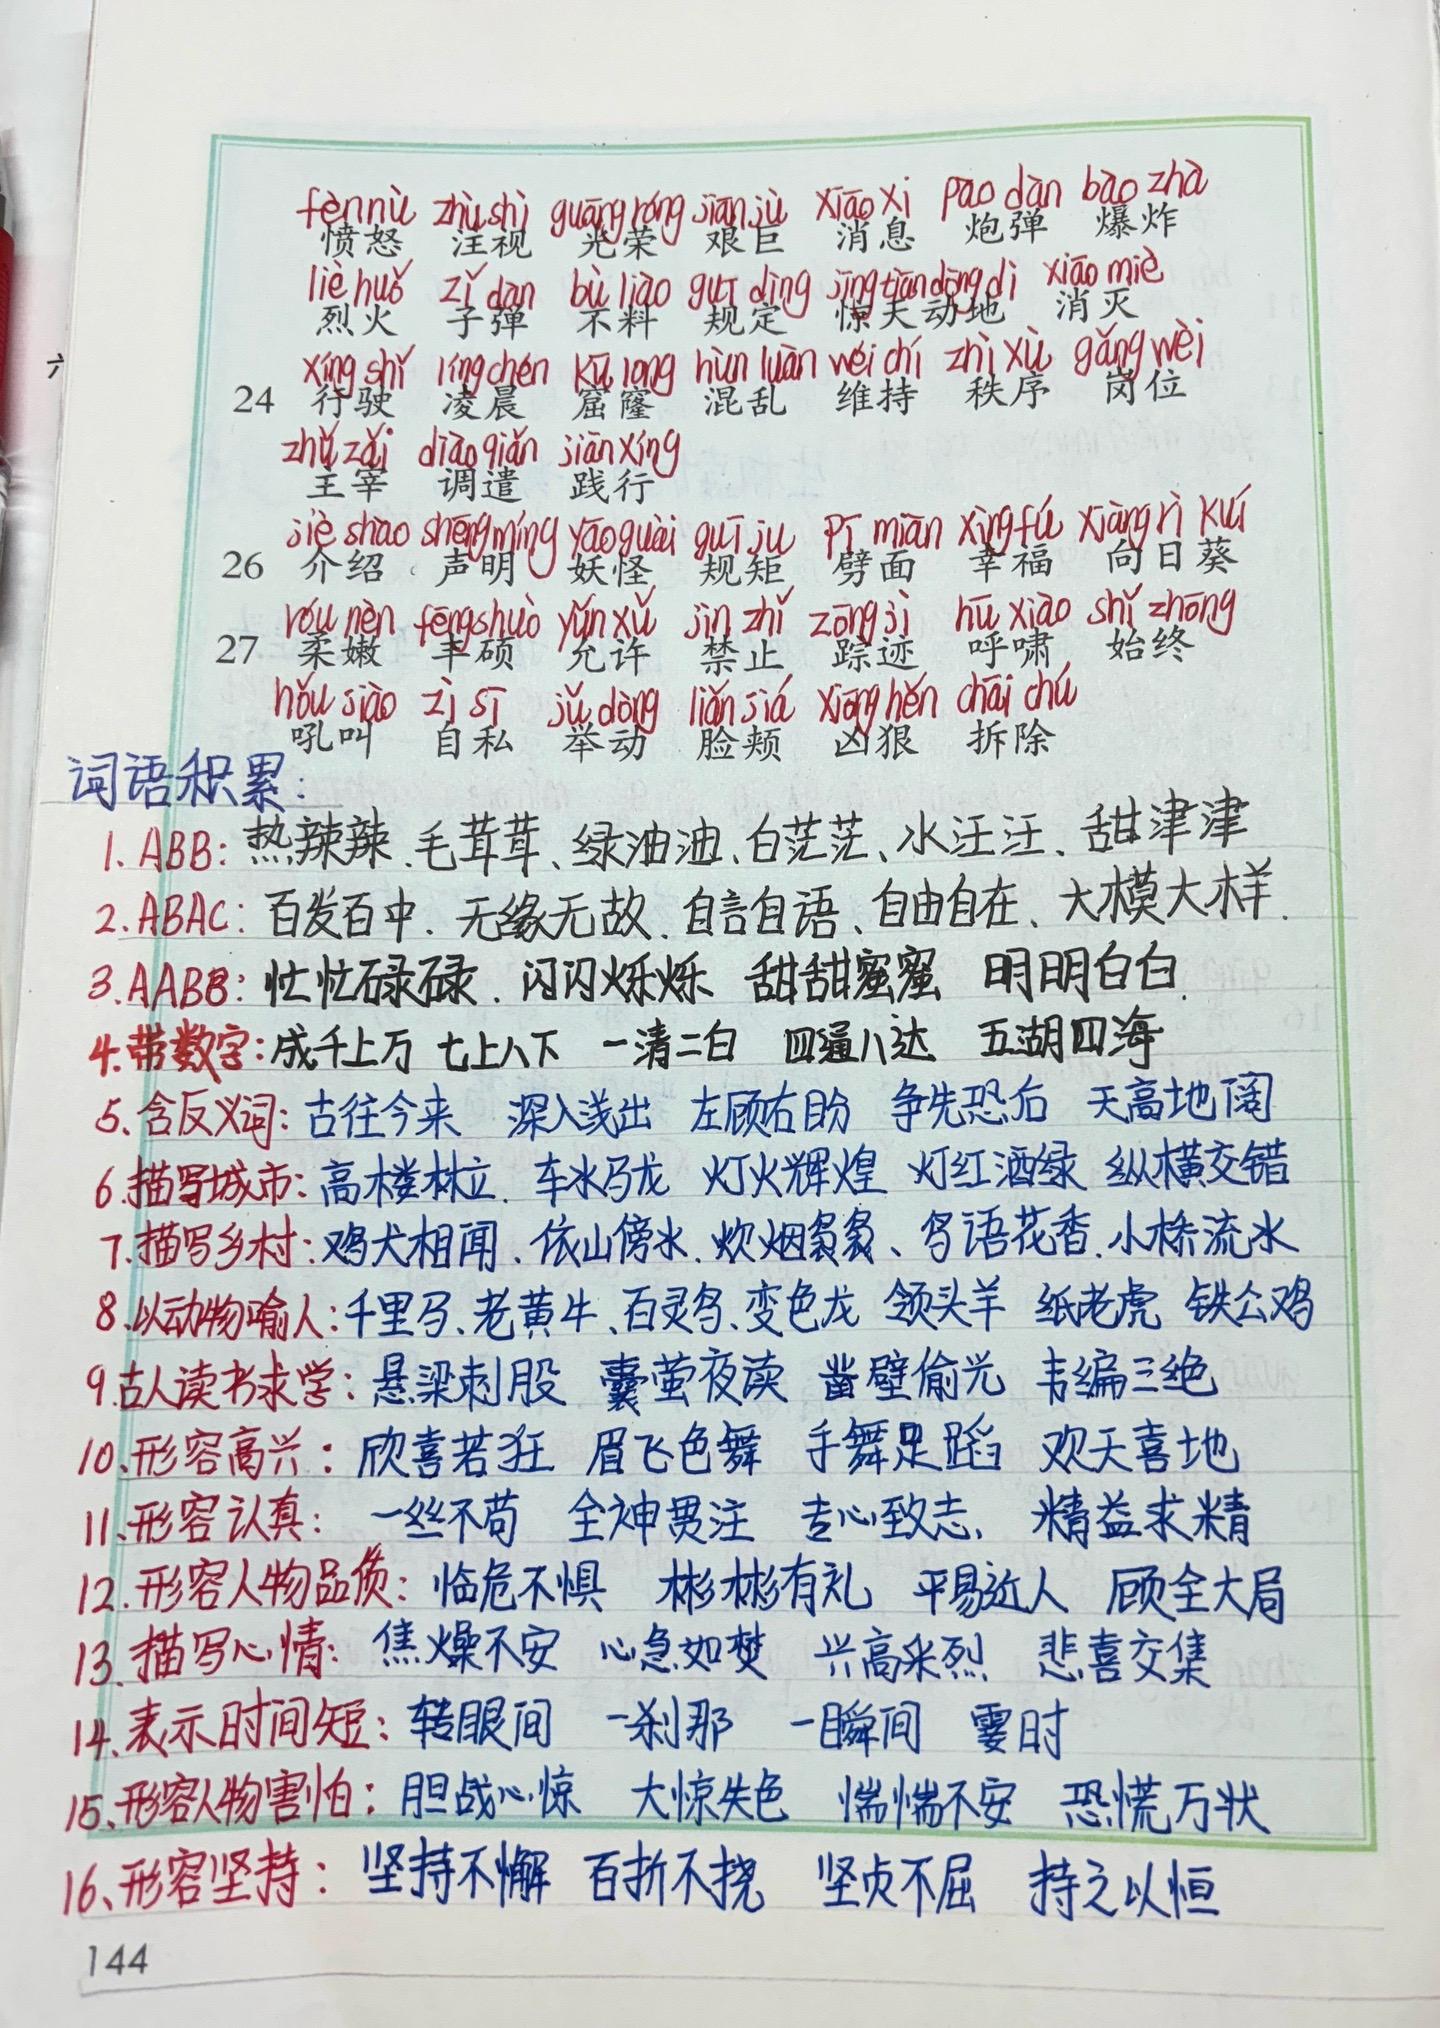 fèn nù zhù shì guāng róng jiān jù xiāo xi pào dàn bào zhà
愤怒 注视 光荣 艰巨 消息 炮弹 爆炸
liè huǒ zǐ dàn bù liào guī dìng jīng tiān dòng dì xiāo miè
烈火 子弹 不料 规定 惊天动地 消灭
xíng shǐ líng chén kū long hùn luàn wéi chí zhì xù gǎng wèi
24 行驶 凌晨 窟窿 混乱 维持 秩序 岗位
六
zhǔ zǎi diào qiǎn jiàn xíng
主宰 调遣 践行
jiè shào shēng míng yāo guài guī ju pī miàn xìng fú xiàng rì kuí
26 介绍 声明 妖怪 规矩 劈面 幸福 向日葵
róu nèn fēng shuò yǔn xǔ jìn zhǐ zōng jì hū xiào shǐ zhōng
27 柔嫩 丰硕 允许 禁止 踪迹 呼啸 始终
hǒu jiào zì sī jǔ dòng liǎn jiá xiōng hěn chāi chú
吼叫 自私 举动 脸颊 凶狠 拆除
词语积累:
1. ABB: 热辣辣、毛茸茸、绿油油、白茫茫、水汪汪、甜津津
2. ABAC: 百发百中、无缘无故、自言自语、自由自在、大模大样.
3. AABB: 忙忙碌碌、闪闪烁烁 甜甜蜜蜜 明明白白.
4. 带数字: 成千上万 七上八下 一清二白 四通八达 五湖四海
5、含反义词: 古往今来 深入浅出 左顾右盼 争先恐后 天高地阔
6. 描写城市: 高楼林立、车水马龙 灯火辉煌 灯红酒绿 纵横交错
7. 描写乡村: 鸡犬相闻、依山傍水、炊烟袅袅、鸟语花香、小桥流水
8、以动物喻人: 千里马、老黄牛、百灵鸟、变色龙 领头羊 纸老虎 铁公鸡
9. 古人读书求学: 悬梁刺股 囊萤夜读 凿壁偷光 韦编三绝
10、形容高兴: 欣喜若狂 眉飞色舞 手舞足蹈 欢天喜地
11、形容认真: 一丝不苟 全神贯注 专心致志、精益求精
12. 形容人物品质: 临危不惧 彬彬有礼 平易近人 顾全大局
13. 描写心情: 焦燥不安 心急如焚 兴高采烈 悲喜交集
14、表示时间短: 转眼间 一刹那 一瞬间 霎时
15、形容人物害怕: 胆战心惊 大惊失色 惴惴不安 恐慌万状
16、形容坚持: 坚持不懈 百折不挠 坚贞不屈 持之以恒
144